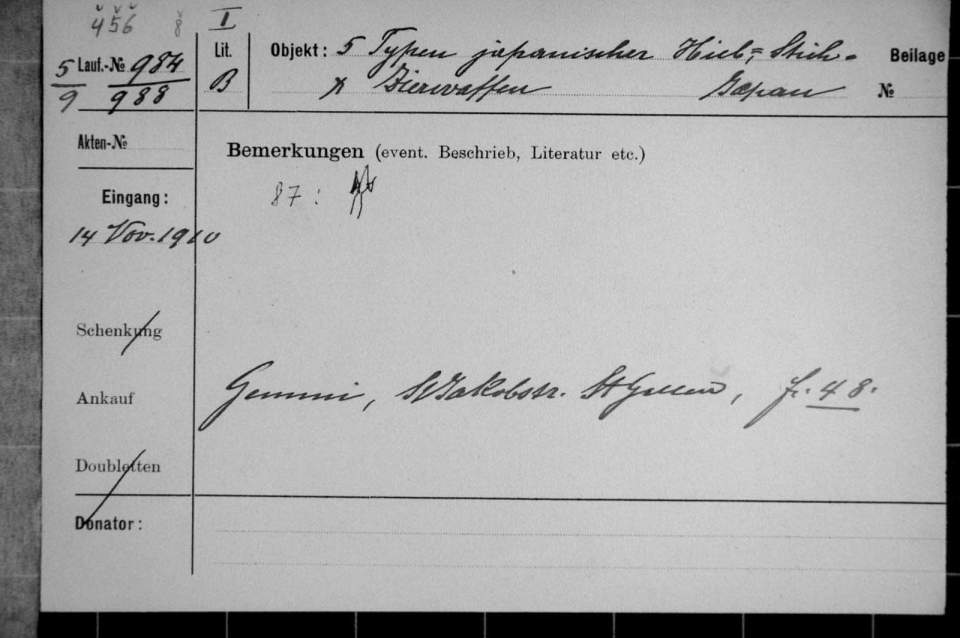 4 5 6 8 I
5/9 Lauf.-№ 984/988 Lit. B Objekt: 5 Typen japanischer Hieb=, Stich-
Zierwaffen Japan
Beilage №
Akten-№
Bemerkungen (event. Beschrieb, Literatur etc.)
87:
Eingang:
14 Nov. 1910
Schenkung
Ankauf Gemmi, St Jakobstr. St Gallen, f. 48.
Doubletten
Donator: